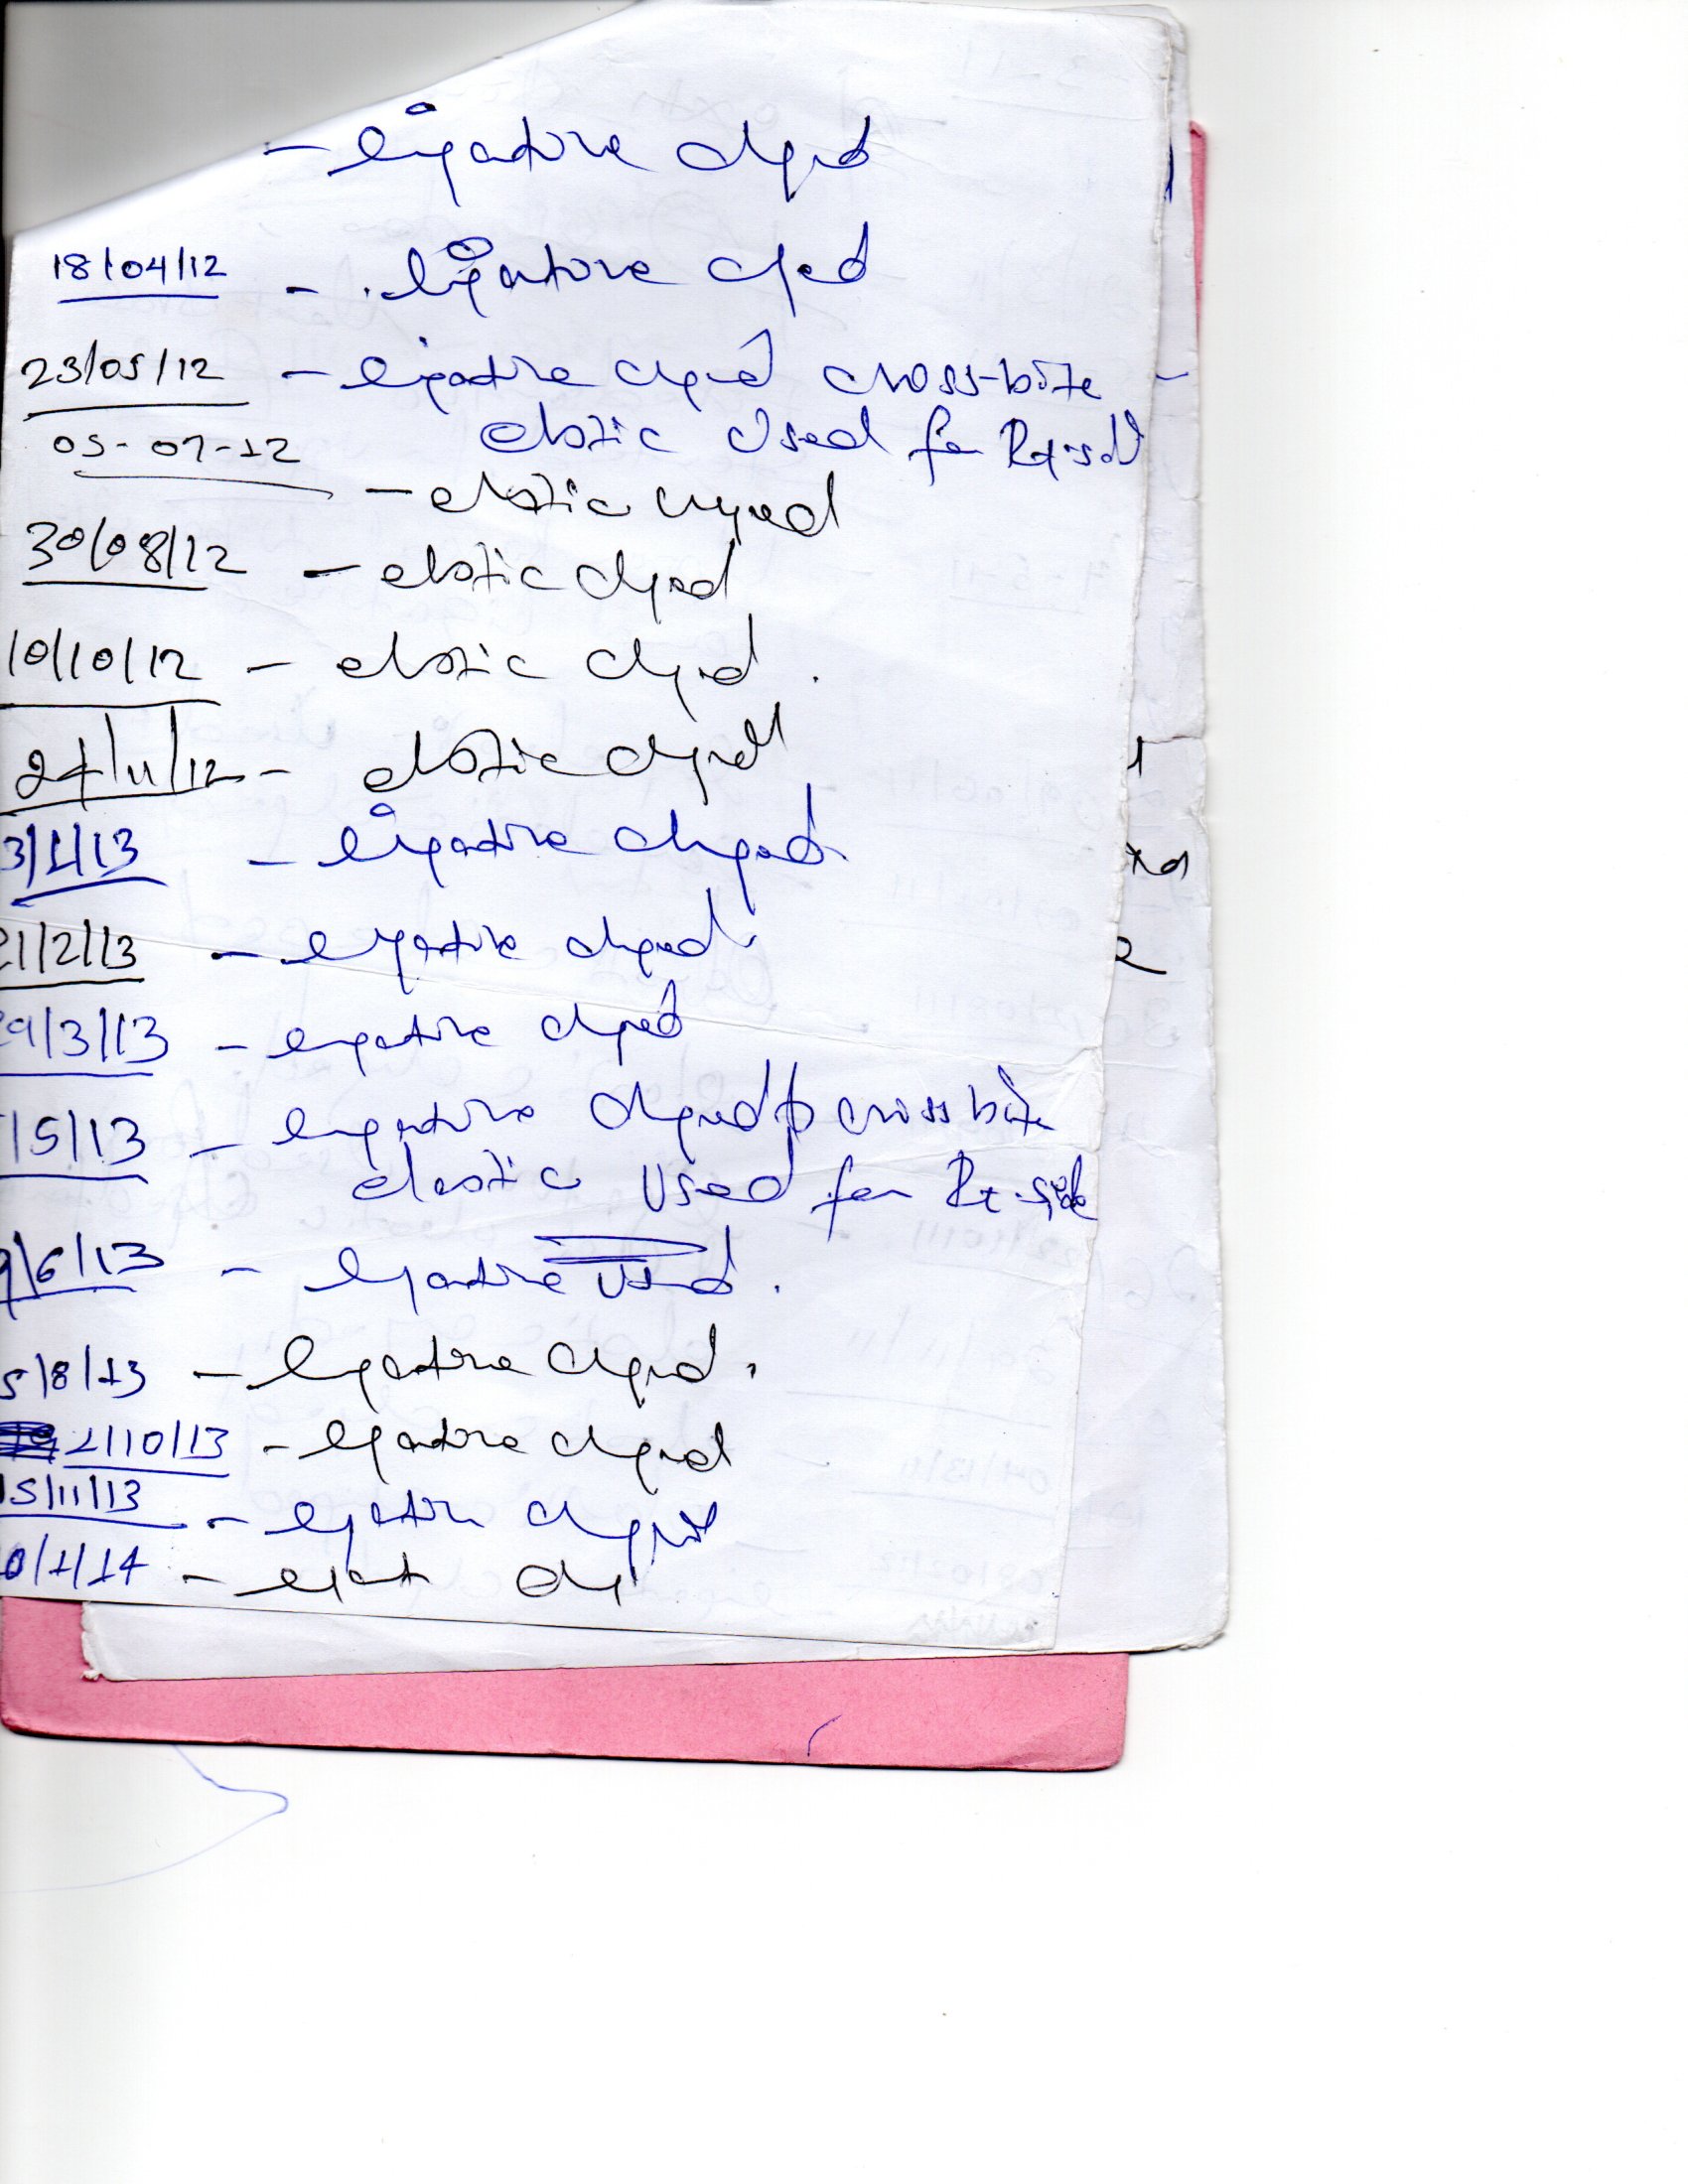 - ligature chged
18/04/12 - ligature chged
23/05/12 - ligature chged cross-bite -
elastic Used for Rt-sd
05-07-12
- elastic chged
30/08/12 - elastic chged
10/10/12 - elastic chged.
24/11/12 - elastic chged
3/1/13 - ligature chged
21/2/13 - ligature chged
29/3/13 - ligature chged
/5/13 - ligature chged cross bite
elastic Used for Rt. side
9/6/13 - ligature Used.
5/8/13 - ligature chged.
1/10/13 - ligature chged
15/11/13 - ligature chged
0/1/14 -